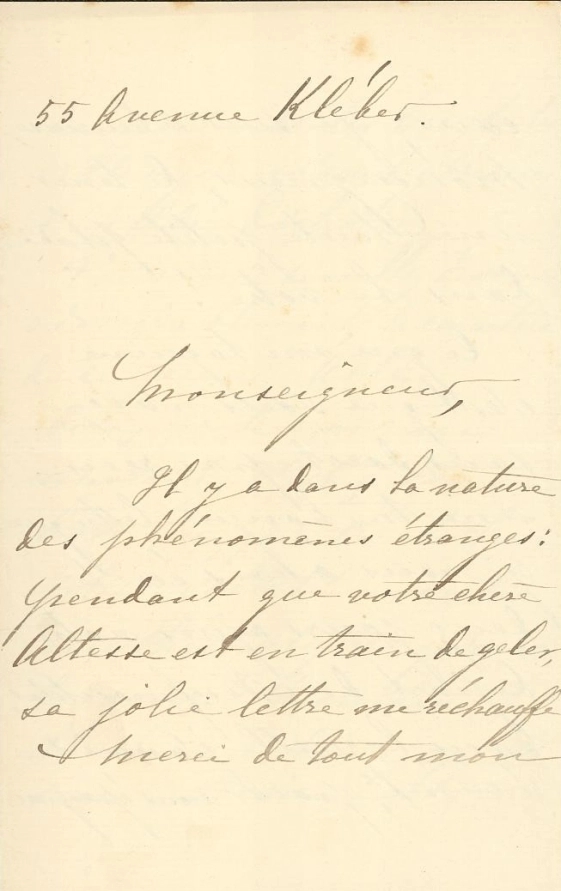 55 Avenue Kléber.
Monseigneur,
Il y a dans la nature
des phénomènes étranges:
pendant que votre chère
Altesse est en train de geler,
sa jolie lettre me réchauffe
Merci de tout mon